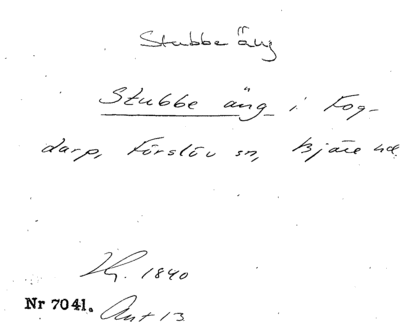 Stubbe äng
Stubbe äng i Fog-
darp, Förslöv sn, Bjäre hd.
Hg. 1840
Nr 7041. Ant 13